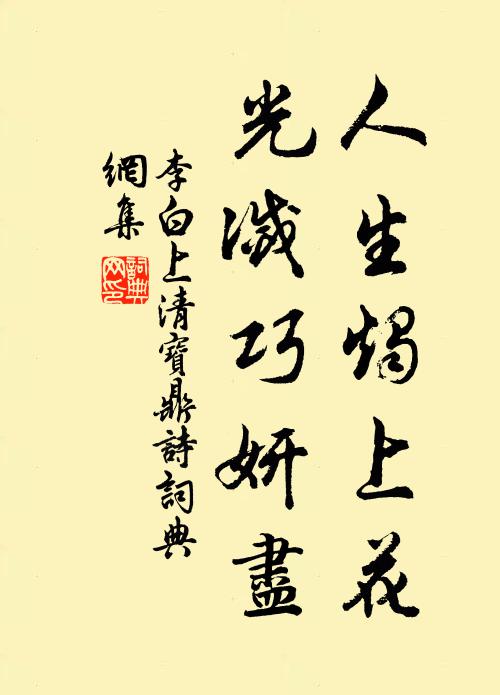 人生燭上花
光滅巧妍盡
李白上清寶鼎詩詞典
網集
詞典
网印